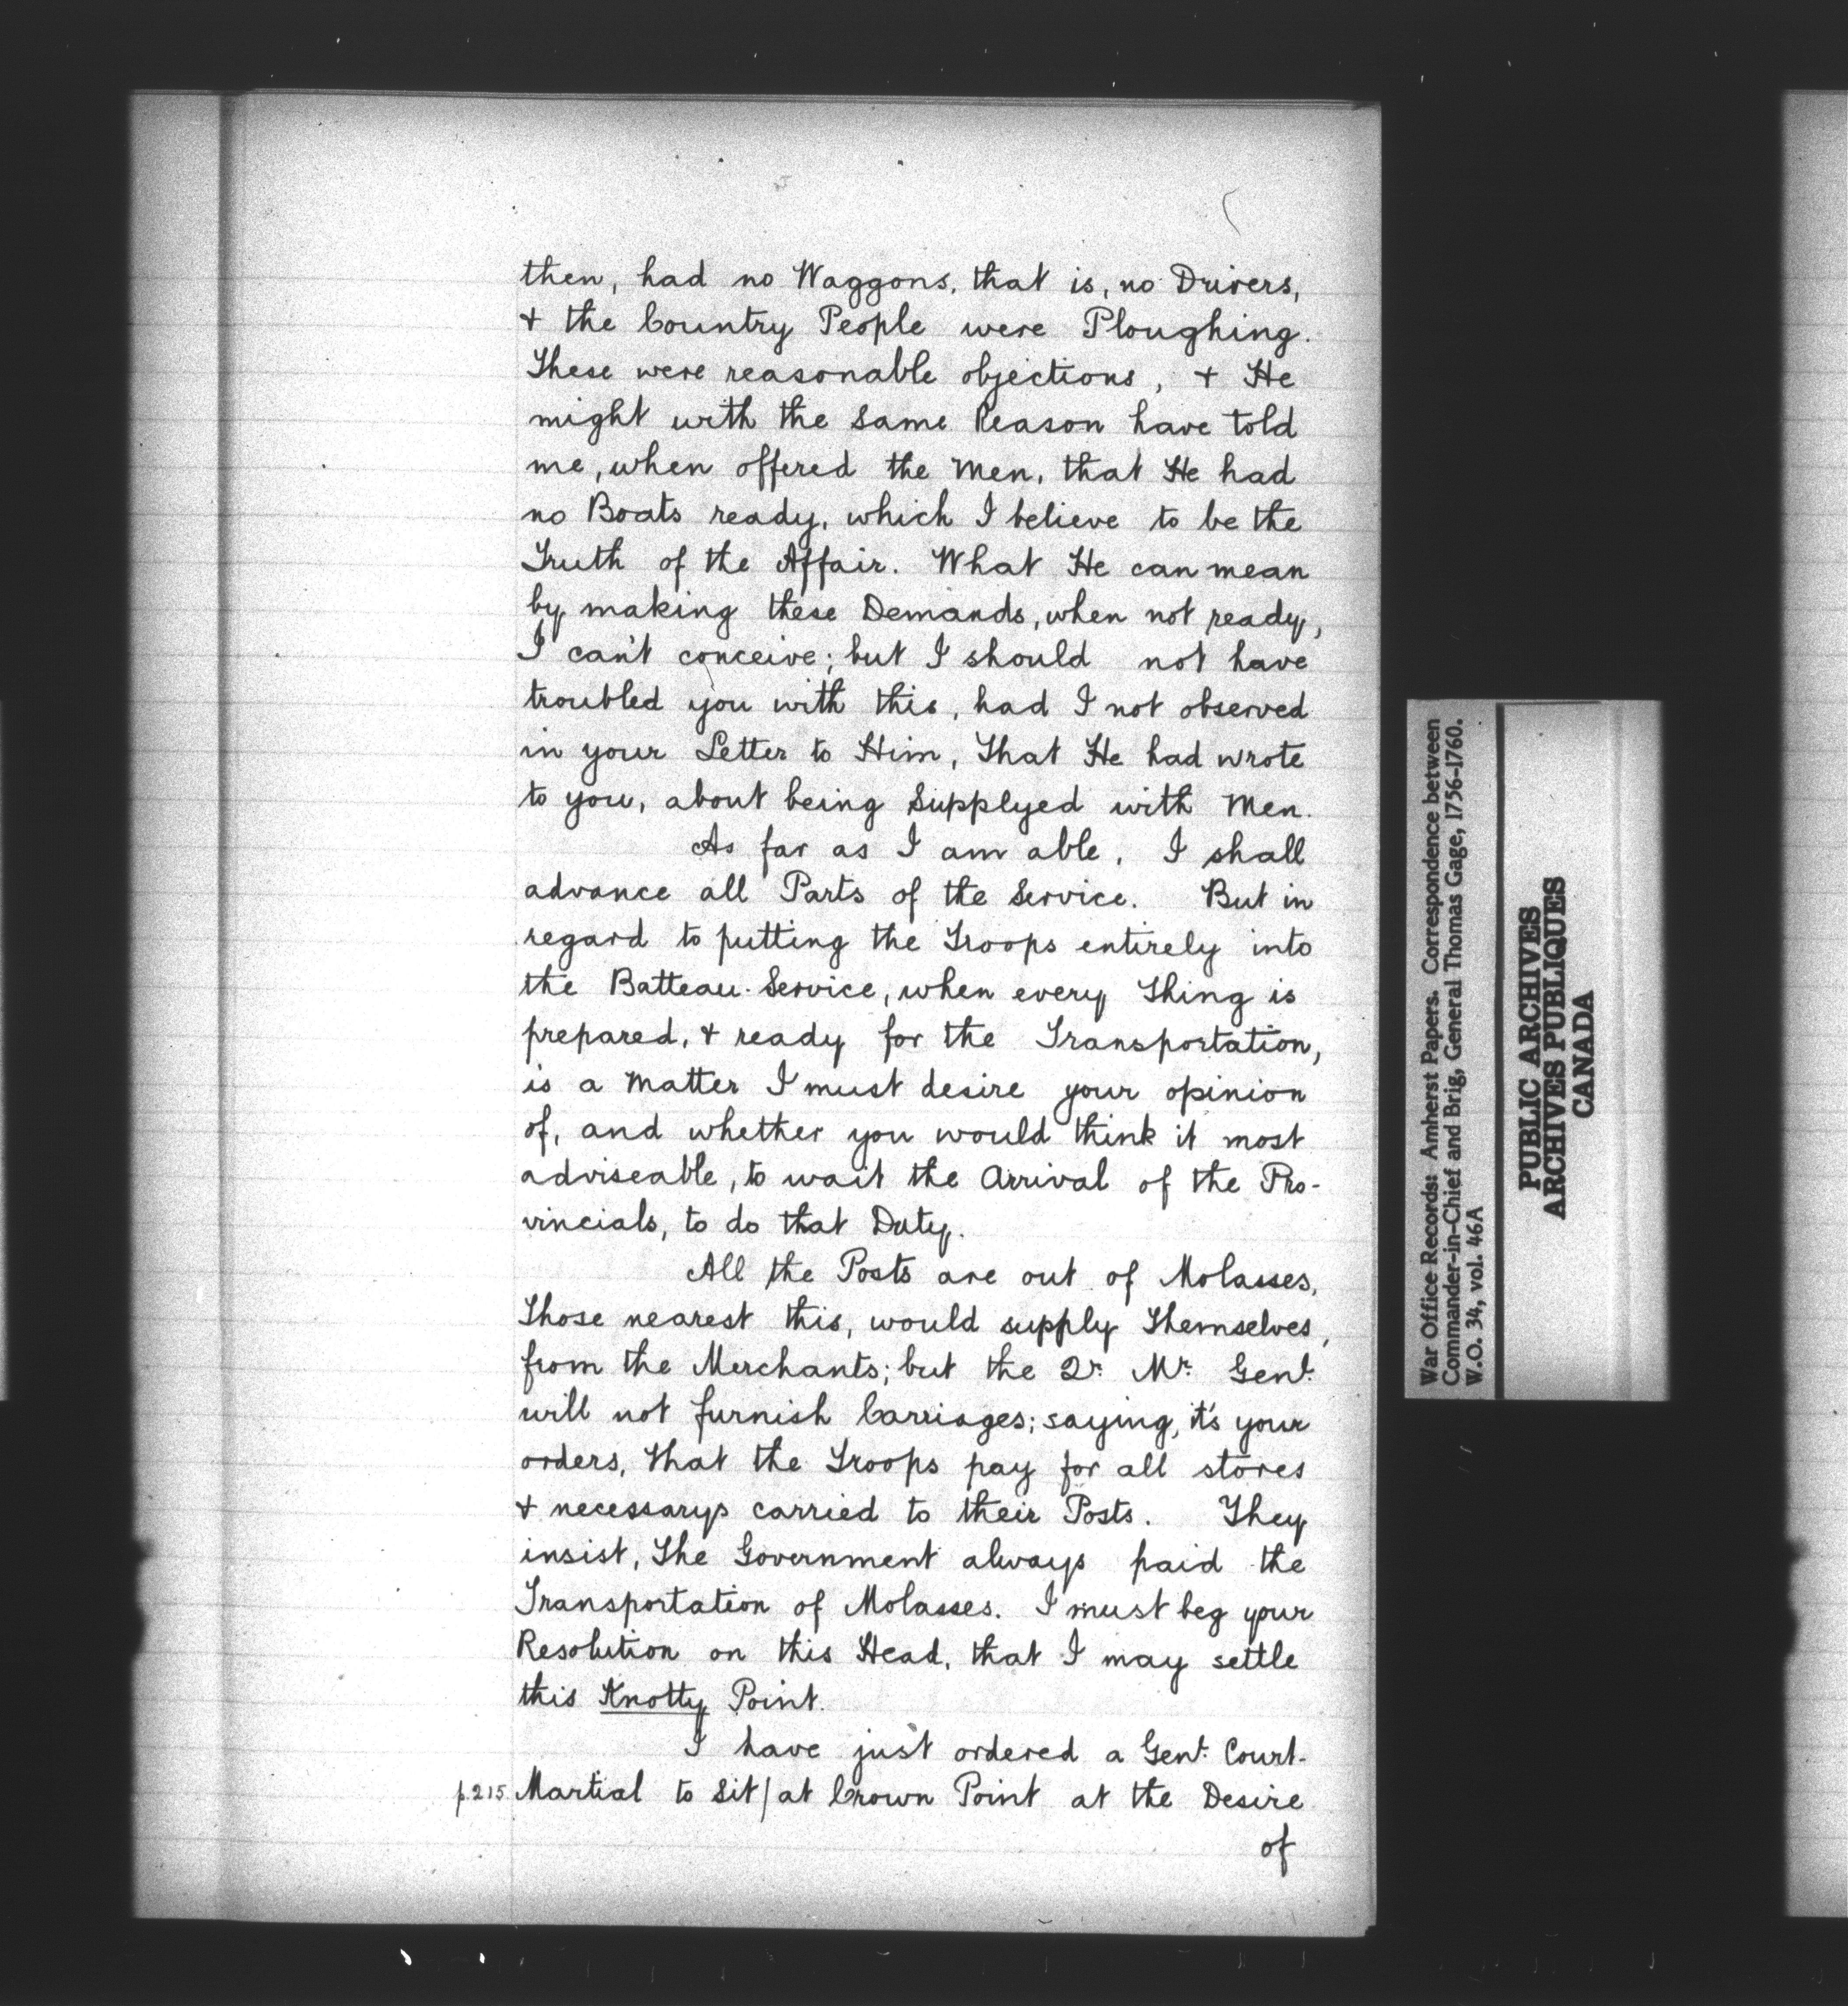 then, had no Waggons, that is, no Drivers,
+ the Country People were Ploughing.
These were reasonable objections, + He
might with the Same Reason have told
me, when offered the Men, that He had
no Boats ready, which I believe to be the
Truth of the Affair. What He can mean
by making these Demands, when not ready,
I can't conceive; but I should not have
troubled you with this, had I not observed
in your Letter to Him, That He had wrote
to you, about being Supplyed with Men.
As far as I am able, I shall
advance all Parts of the Service. But in
regard to putting the Troops entirely into
the Batteau-Service, when every Thing is
prepared, + ready for the Transportation,
is a Matter I must desire your opinion
of, and whether you would think it most
adviseable, to wait the Arrival of the Pro-
vincials, to do that Duty.
All the Posts are out of Molasses,
Those nearest this, would supply Themselves,
from the Merchants; but the Qr. Mr. Genl.
will not furnish Carriages; saying, it's your
orders, that the Troops pay for all stores
+ necessarys carried to their Posts. They
insist, The Government always paid the
Transportation of Molasses. I must beg your
Resolution on this Head, that I may settle
this Knotty Point.
I have just ordered a Genl. Court-
p.215. Martial to Sit/at Crown Point at the Desire
of
War Office Records: Amherst Papers. Correspondence between
Commander-in-Chief and Brig, General Thomas Gage, 1756-1760.
W.O. 34, vol. 46A
PUBLIC ARCHIVES
ARCHIVES PUBLIQUES
CANADA